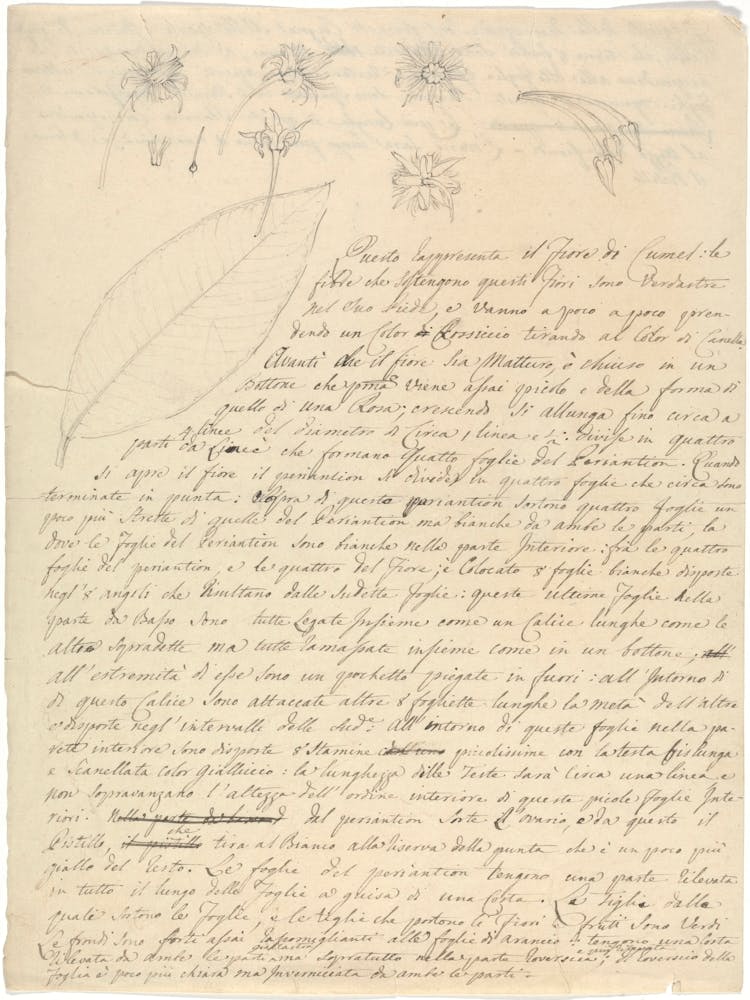 Questo rappresenta il Fiore di Cumel: le
fibre che sostengono questi Fiori sono Verdastre
nel suo piede, e vanno a poco a poco pren-
dendo un Color di Rossiccio tirando al Color di Canella.
Avanti che il fiore sia Matturo, è chiuso in un
Bottone che prima viene assai picolo e della forma di
quello di una Rosa; crescendo si allunga fino circa a
4 linee del diametro di Circa 1 linea e divise in quattro
parti che formano quattro foglie del Periantion. Quando
si apre il fiore il periantion si divide in quattro foglie che circa sono
terminate in punta: sopra di questo periantion sortono quattro foglie un
poco più strette di quelle del Periantion ma bianche da ambe le parti, la
dove le foglie del Periantion sono bianche nella parte Interiore: frà le quattro
foglie del periantion, e le quattro del Fiore, è Colocato 8 foglie bianche disposte
negl'8 angeli che Risultano dalle sudette foglie: queste ultime foglie nella
parte da Basso sono tutte Legate Insieme come un Calice lunghe come le
altre sopradette ma tutte ramassate insieme come in un bottone, all'
all'estremità di esse sono un pochetto piegate in fuori: all'Intorno di
di questo Calice sono attaccate altre 8 fogliette lunghe la metà dell'altre
e disposte negl'intervalli delle sud.e All'intorno di queste foglie nella pa-
rete interiore sono disposte 8 stamine picolissime con la testa bislunga
e Scanellata color Gialliccio: la lunghezza delle Teste sarà circa una linea, e
non sopravanzano l'altezza dell'ordine interiore di queste picole foglie Inte-
riori. Nella parte da basso dal periantion sorte l'ovario, e da questo il
Pistillo, il pistillo che tira al Bianco alla riserva della punta che è un poco più
giallo del resto. Le foglie del periantion tengono una parte rilevata
in tutto il lungo delle foglie a guisa di una Costa. Le tiglie dalle
quali sortono le foglie, e le tiglie che portono li Fiori e frutti sono Verdi
Le frondi sono forti assai rassomiglianti alle foglie di arancio: tengono una Costa
rilevata da ambe le parti ma sopratutto nella parte roverscia; il roverscio della
foglia è poco più chiara ma Inverniciata da ambe le parti.